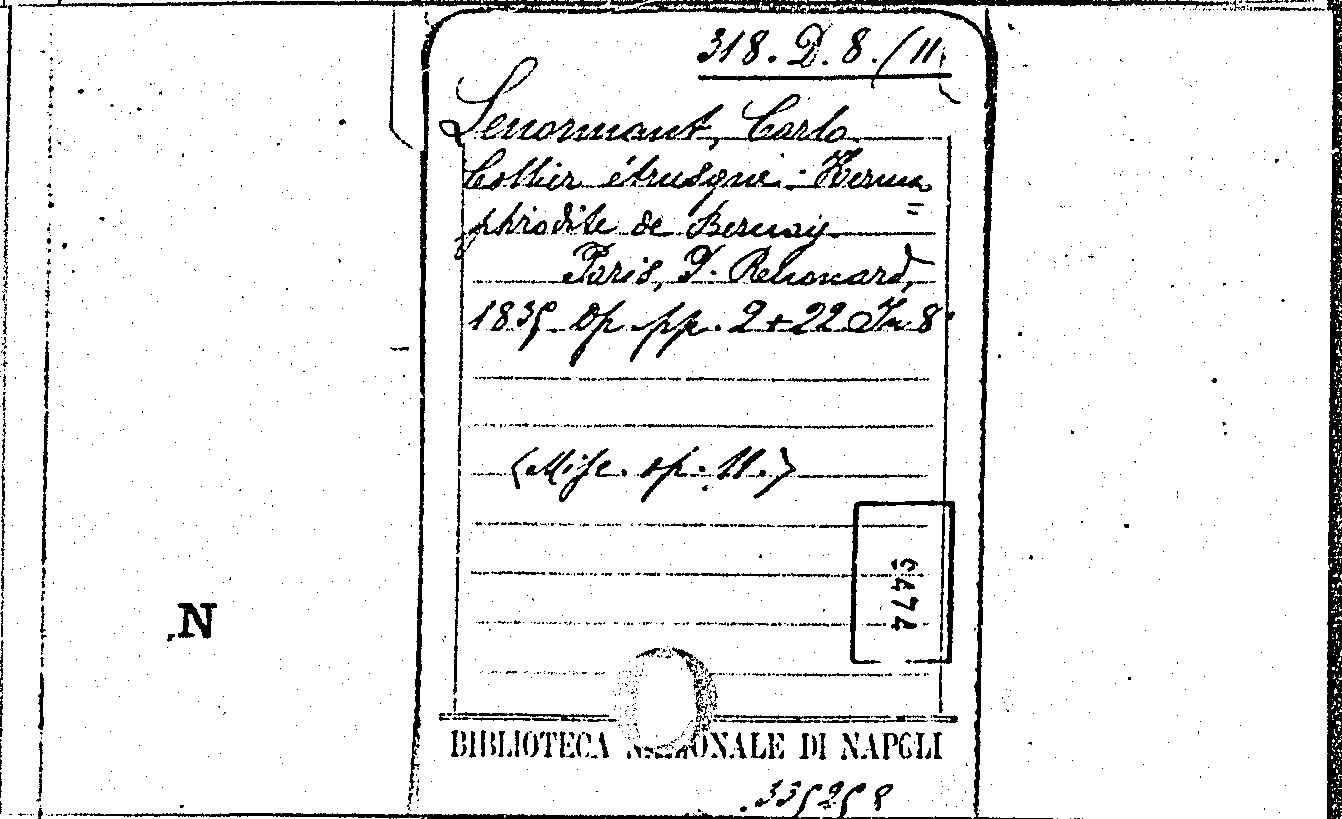 318. D. 8. / 11.
Lenormant, Carlo
Collier étrusque. - Herma
=
phrodite de Bernay.
Paris, J. Renouard,
1835 Op. pp. 2+22 In 8°
(Misc. op. 11.)
9474
N
BIBLIOTECA NAZIONALE DI NAPOLI
335258